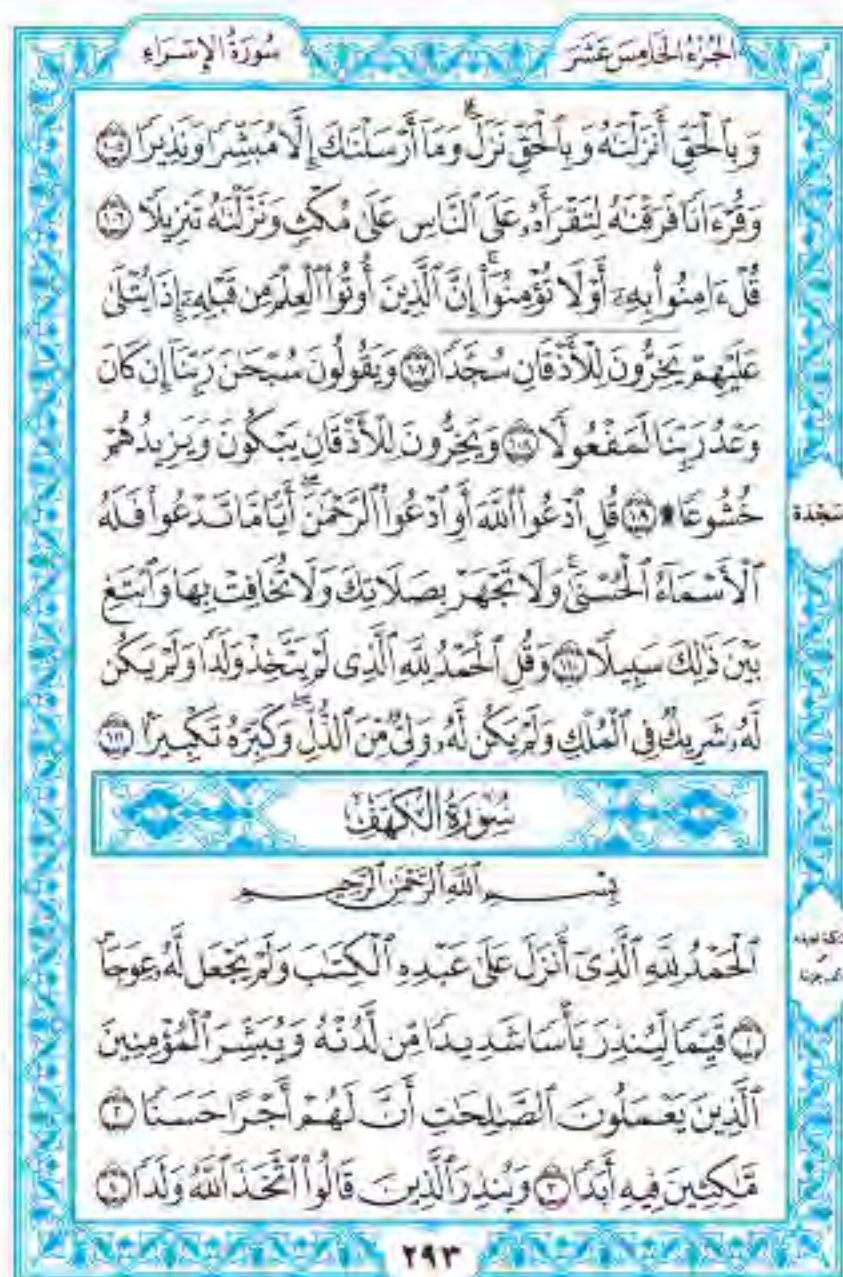 الجُزْءُ الخَامِسَ عَشَرَ
سُورَةُ الإِسْرَاءِ
وَبِٱلْحَقِّ أَنزَلْنَٰهُ وَبِٱلْحَقِّ نَزَلَ ۗ وَمَآ أَرْسَلْنَٰكَ إِلَّا مُبَشِّرًا وَنَذِيرًا ١٠٥
وَقُرْءَانًا فَرَقْنَٰهُ لِتَقْرَأَهُۥ عَلَى ٱلنَّاسِ عَلَىٰ مُكْثٍ وَنَزَّلْنَٰهُ تَنزِيلًا ١٠٦
قُلْ ءَامِنُوا۟ بِهِۦٓ أَوْ لَا تُؤْمِنُوٓا۟ ۚ إِنَّ ٱلَّذِينَ أُوتُوا۟ ٱلْعِلْمَ مِن قَبْلِهِۦٓ إِذَا يُتْلَىٰ
عَلَيْهِمْ يَخِرُّونَ لِلْأَذْقَانِ سُجَّدًا ١٠٧ وَيَقُولُونَ سُبْحَٰنَ رَبِّنَآ إِن كَانَ
وَعْدُ رَبِّنَا لَمَفْعُولًا ١٠٨ وَيَخِرُّونَ لِلْأَذْقَانِ يَبْكُونَ وَيَزِيدُهُمْ
خُشُوعًا ۩ ١٠٩ قُلِ ٱدْعُوا۟ ٱللَّهَ أَوِ ٱدْعُوا۟ ٱلرَّحْمَٰنَ ۖ أَيًّا مَّا تَدْعُوا۟ فَلَهُ
سَجْدَة
ٱلْأَسْمَآءُ ٱلْحُسْنَىٰ ۚ وَلَا تَجْهَرْ بِصَلَاتِكَ وَلَا تُخَافِتْ بِهَا وَٱبْتَغِ
بَيْنَ ذَٰلِكَ سَبِيلًا ١١٠ وَقُلِ ٱلْحَمْدُ لِلَّهِ ٱلَّذِى لَمْ يَتَّخِذْ وَلَدًا وَلَمْ يَكُن
لَّهُۥ شَرِيكٌ فِى ٱلْمُلْكِ وَلَمْ يَكُن لَّهُۥ وَلِىٌّ مِّنَ ٱلذُّلِّ ۖ وَكَبِّرْهُ تَكْبِيرًۢا ١١١
سُورَةُ الكَهْفِ
بِسْمِ ٱللَّهِ ٱلرَّحْمَٰنِ ٱلرَّحِيمِ
ٱلْحَمْدُ لِلَّهِ ٱلَّذِىٓ أَنزَلَ عَلَىٰ عَبْدِهِ ٱلْكِتَٰبَ وَلَمْ يَجْعَل لَّهُۥ عِوَجَاۜ
١ قَيِّمًا لِّيُنذِرَ بَأْسًا شَدِيدًا مِّن لَّدُنْهُ وَيُبَشِّرَ ٱلْمُؤْمِنِينَ
ٱلَّذِينَ يَعْمَلُونَ ٱلصَّٰلِحَٰتِ أَنَّ لَهُمْ أَجْرًا حَسَنًا ٢
مَّٰكِثِينَ فِيهِ أَبَدًا ٣ وَيُنذِرَ ٱلَّذِينَ قَالُوا۟ ٱتَّخَذَ ٱللَّهُ وَلَدًا ٤
٢٩٣